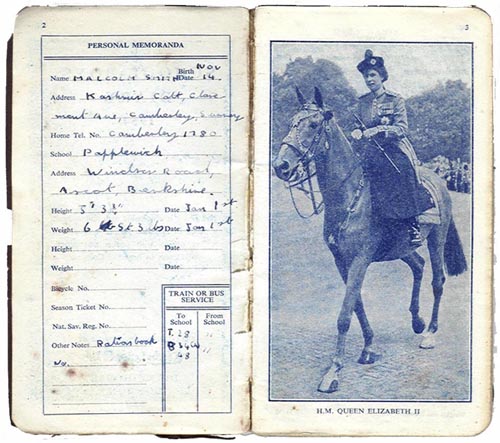 2
PERSONAL MEMORANDA
Name MALCOLM SMITH Birth Date Nov 14.
Address Kashmir Cott, Clare
mont Ave, Camberley, Surrey
Home Tel. No. Camberley 1780
School Papplewick
Address Windsor Road,
Ascot, Berkshire.
Height 5" 3½" Date Jan 1st
Weight 6 Date Jan 1st
Height Date
Weight Date
Bicycle No.
Season Ticket No.
Nat. Sav. Reg. No.
Other Notes Rationbook
No.
TRAIN OR BUS
SERVICE
To School From School
T. 28 "
B "
48 "
3
H.M. QUEEN ELIZABETH II